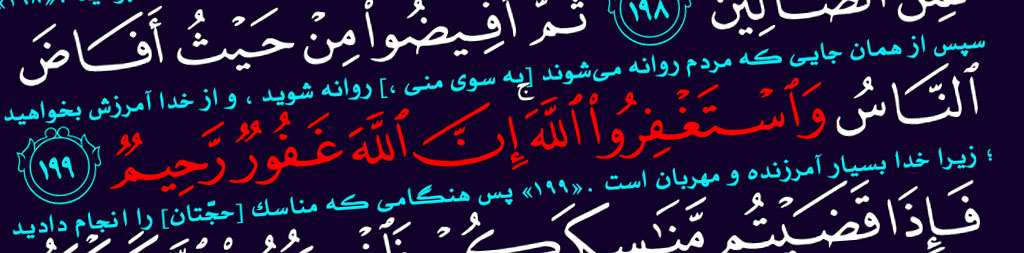 لَمِنَ ٱلضَّآلِّينَ ١٩٨ ثُمَّ أَفِيضُوا۟ مِنْ حَيْثُ أَفَاضَ
سپس از همان جایی که مردم روانه می‌شوند [به سوی منی ،] روانه شوید ، و از خدا آمرزش بخواهید
ٱلنَّاسُ وَٱسْتَغْفِرُوا۟ ٱللَّهَ ۚ إِنَّ ٱللَّهَ غَفُورٌ رَّحِيمٌ ١٩٩
؛ زیرا خدا بسیار آمرزنده و مهربان است . «۱۹۹» پس هنگامی که مناسك [حجّتان] را انجام دادید
فَإِذَا قَضَيْتُم مَّنَٰسِكَكُمْ